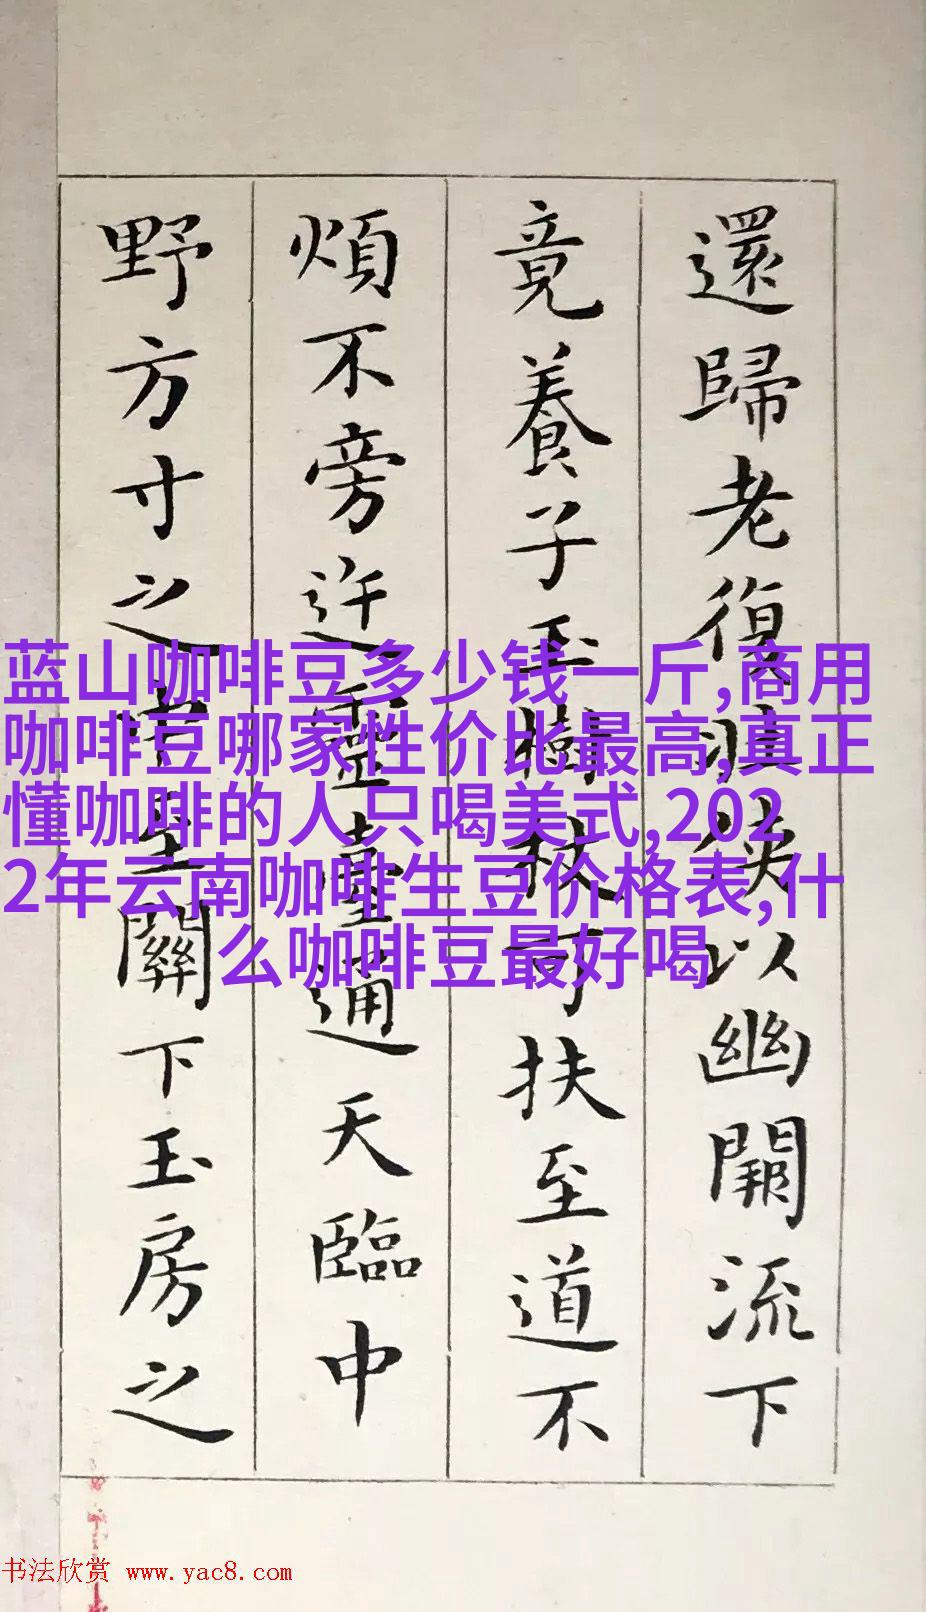 還歸老復俠以幽闕流下
竟養子玉樹杖可扶至道不
煩不旁迕靈臺通天臨中
野方寸之至關下玉房之
蓝山咖啡豆多少钱一斤,商用
咖啡豆哪家性价比最高,真正
懂咖啡的人只喝美式,202
2年云南咖啡生豆价格表,什
么咖啡豆最好喝
书法欣赏 www.yac8.com